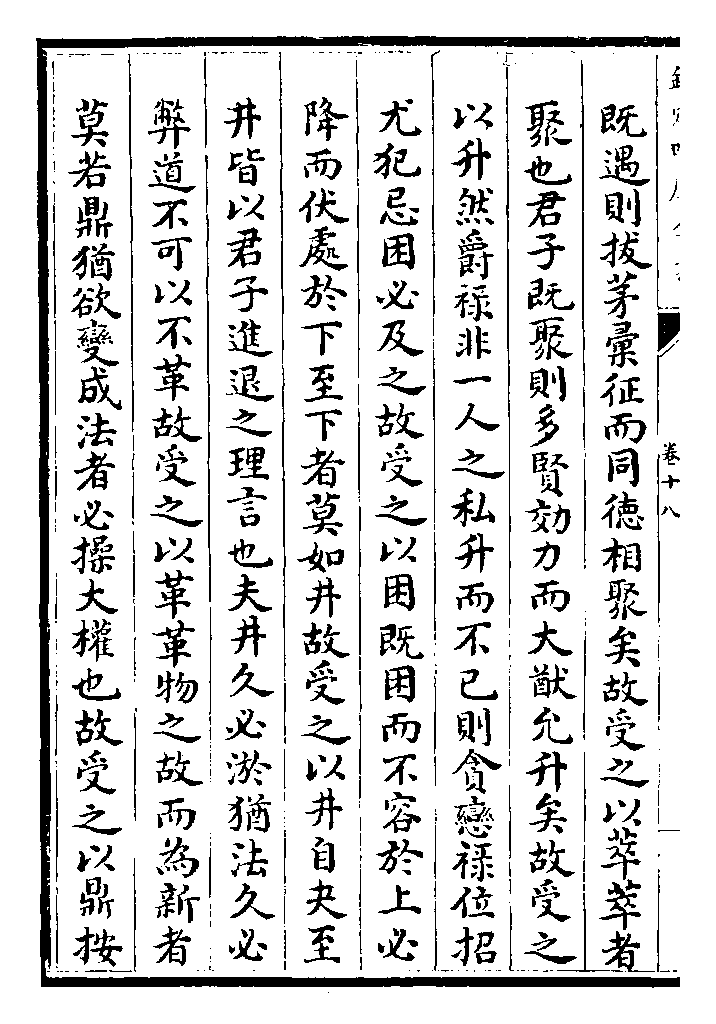 既遇則拔茅彙征而同徳相聚矣故受之以萃萃者
聚也君子既聚則多賢効力而大猷允升矣故受之
以升然爵祿非一人之私升而不已則貪戀祿位招
尤犯忌困必及之故受之以困既困而不容於上必
降而伏處於下至下者莫如井故受之以井自夬至
井皆以君子進退之理言也夫井久必淤猶法久必
弊道不可以不革故受之以革革物之故而為新者
莫若鼎猶欲變成法者必操大權也故受之以鼎按
卷十八